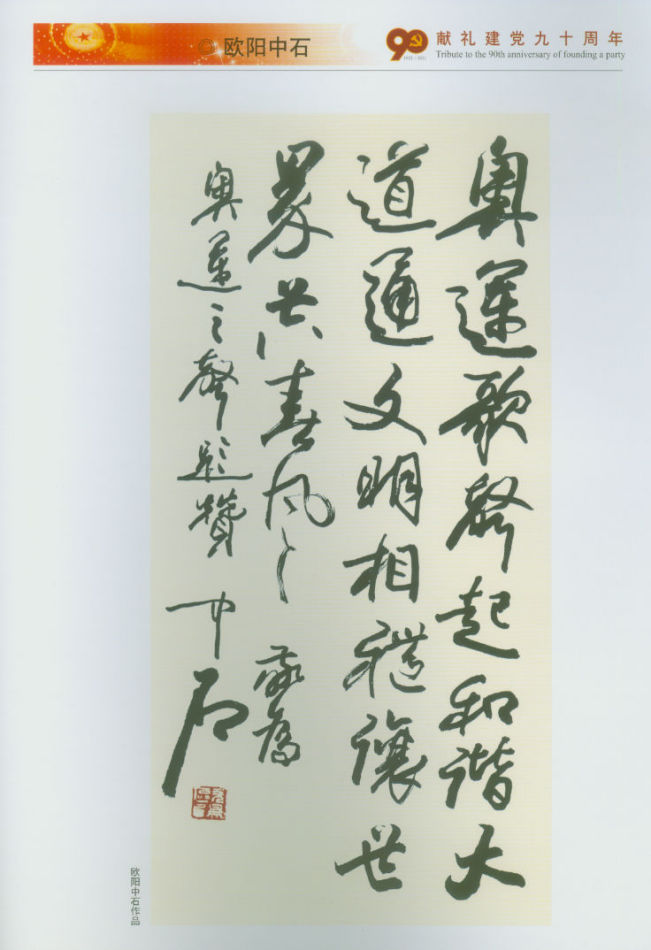 欧阳中石
献礼建党九十周年
Tribute to the 90th anniversary of founding a party
奧運歌聲起和諧大
道通文明相禮讓世
界共春風 敬為
奧運之聲題贊 中石
欧阳中石作品